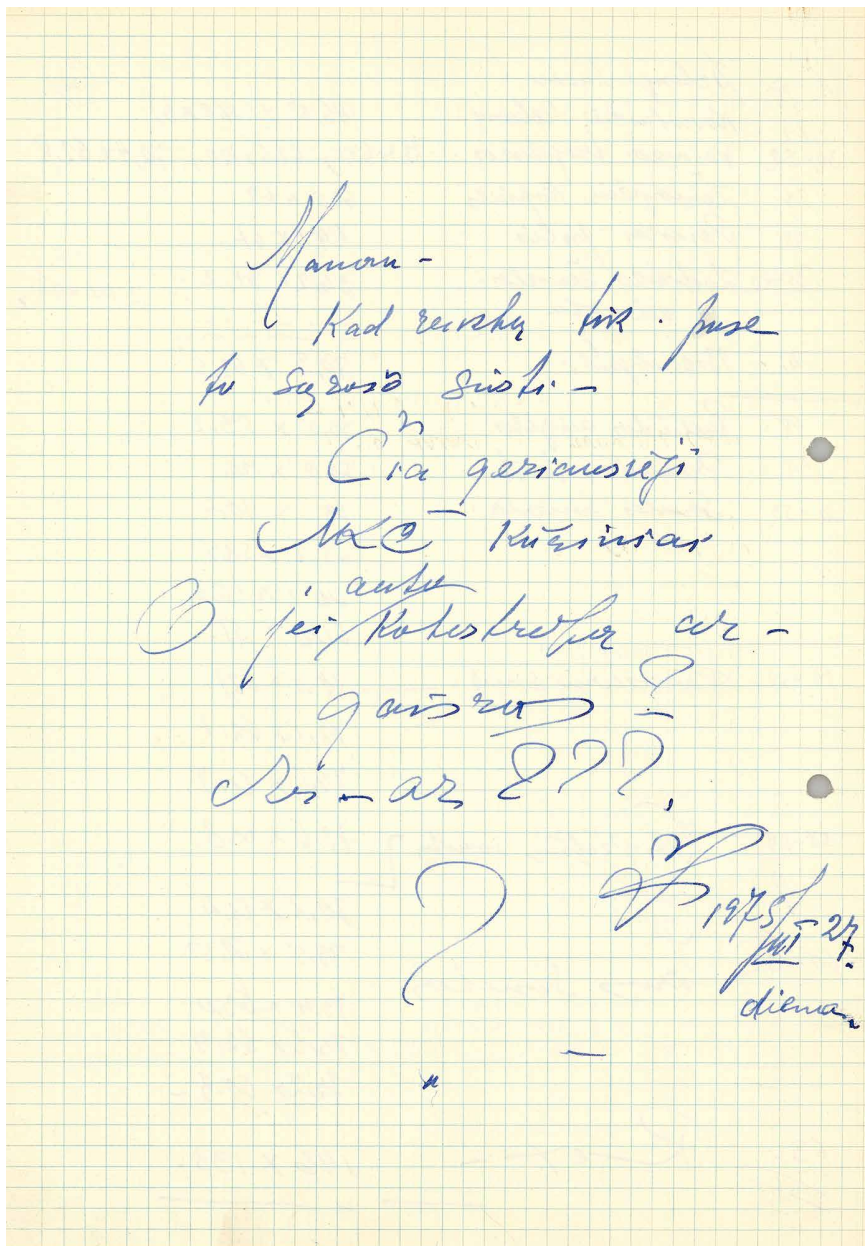 Manau -
Kad reiktų tik pusę
to sąrašo siųsti -
Čia geriausieji
MKČ Kūriniai
O jei auto Katastrofa ar -
gaisras ?
Ar - ar ???
?
1975 27
diena